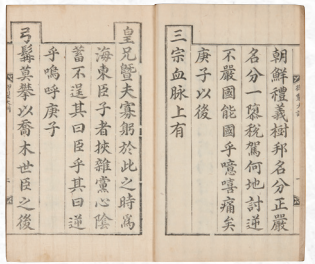 朝鮮禮義樹邦名分正嚴
名分一隳稅駕何地討逆
不嚴國能國乎噫嘻痛矣
庚子以後
三宗血脉上有
皇兄曁夫寡躬於此之時爲
海東臣子者挾雜黨心陰
蓄不逞其曰臣乎其曰逆
乎嗚呼庚子
弓髯莫攀以喬木世臣之後